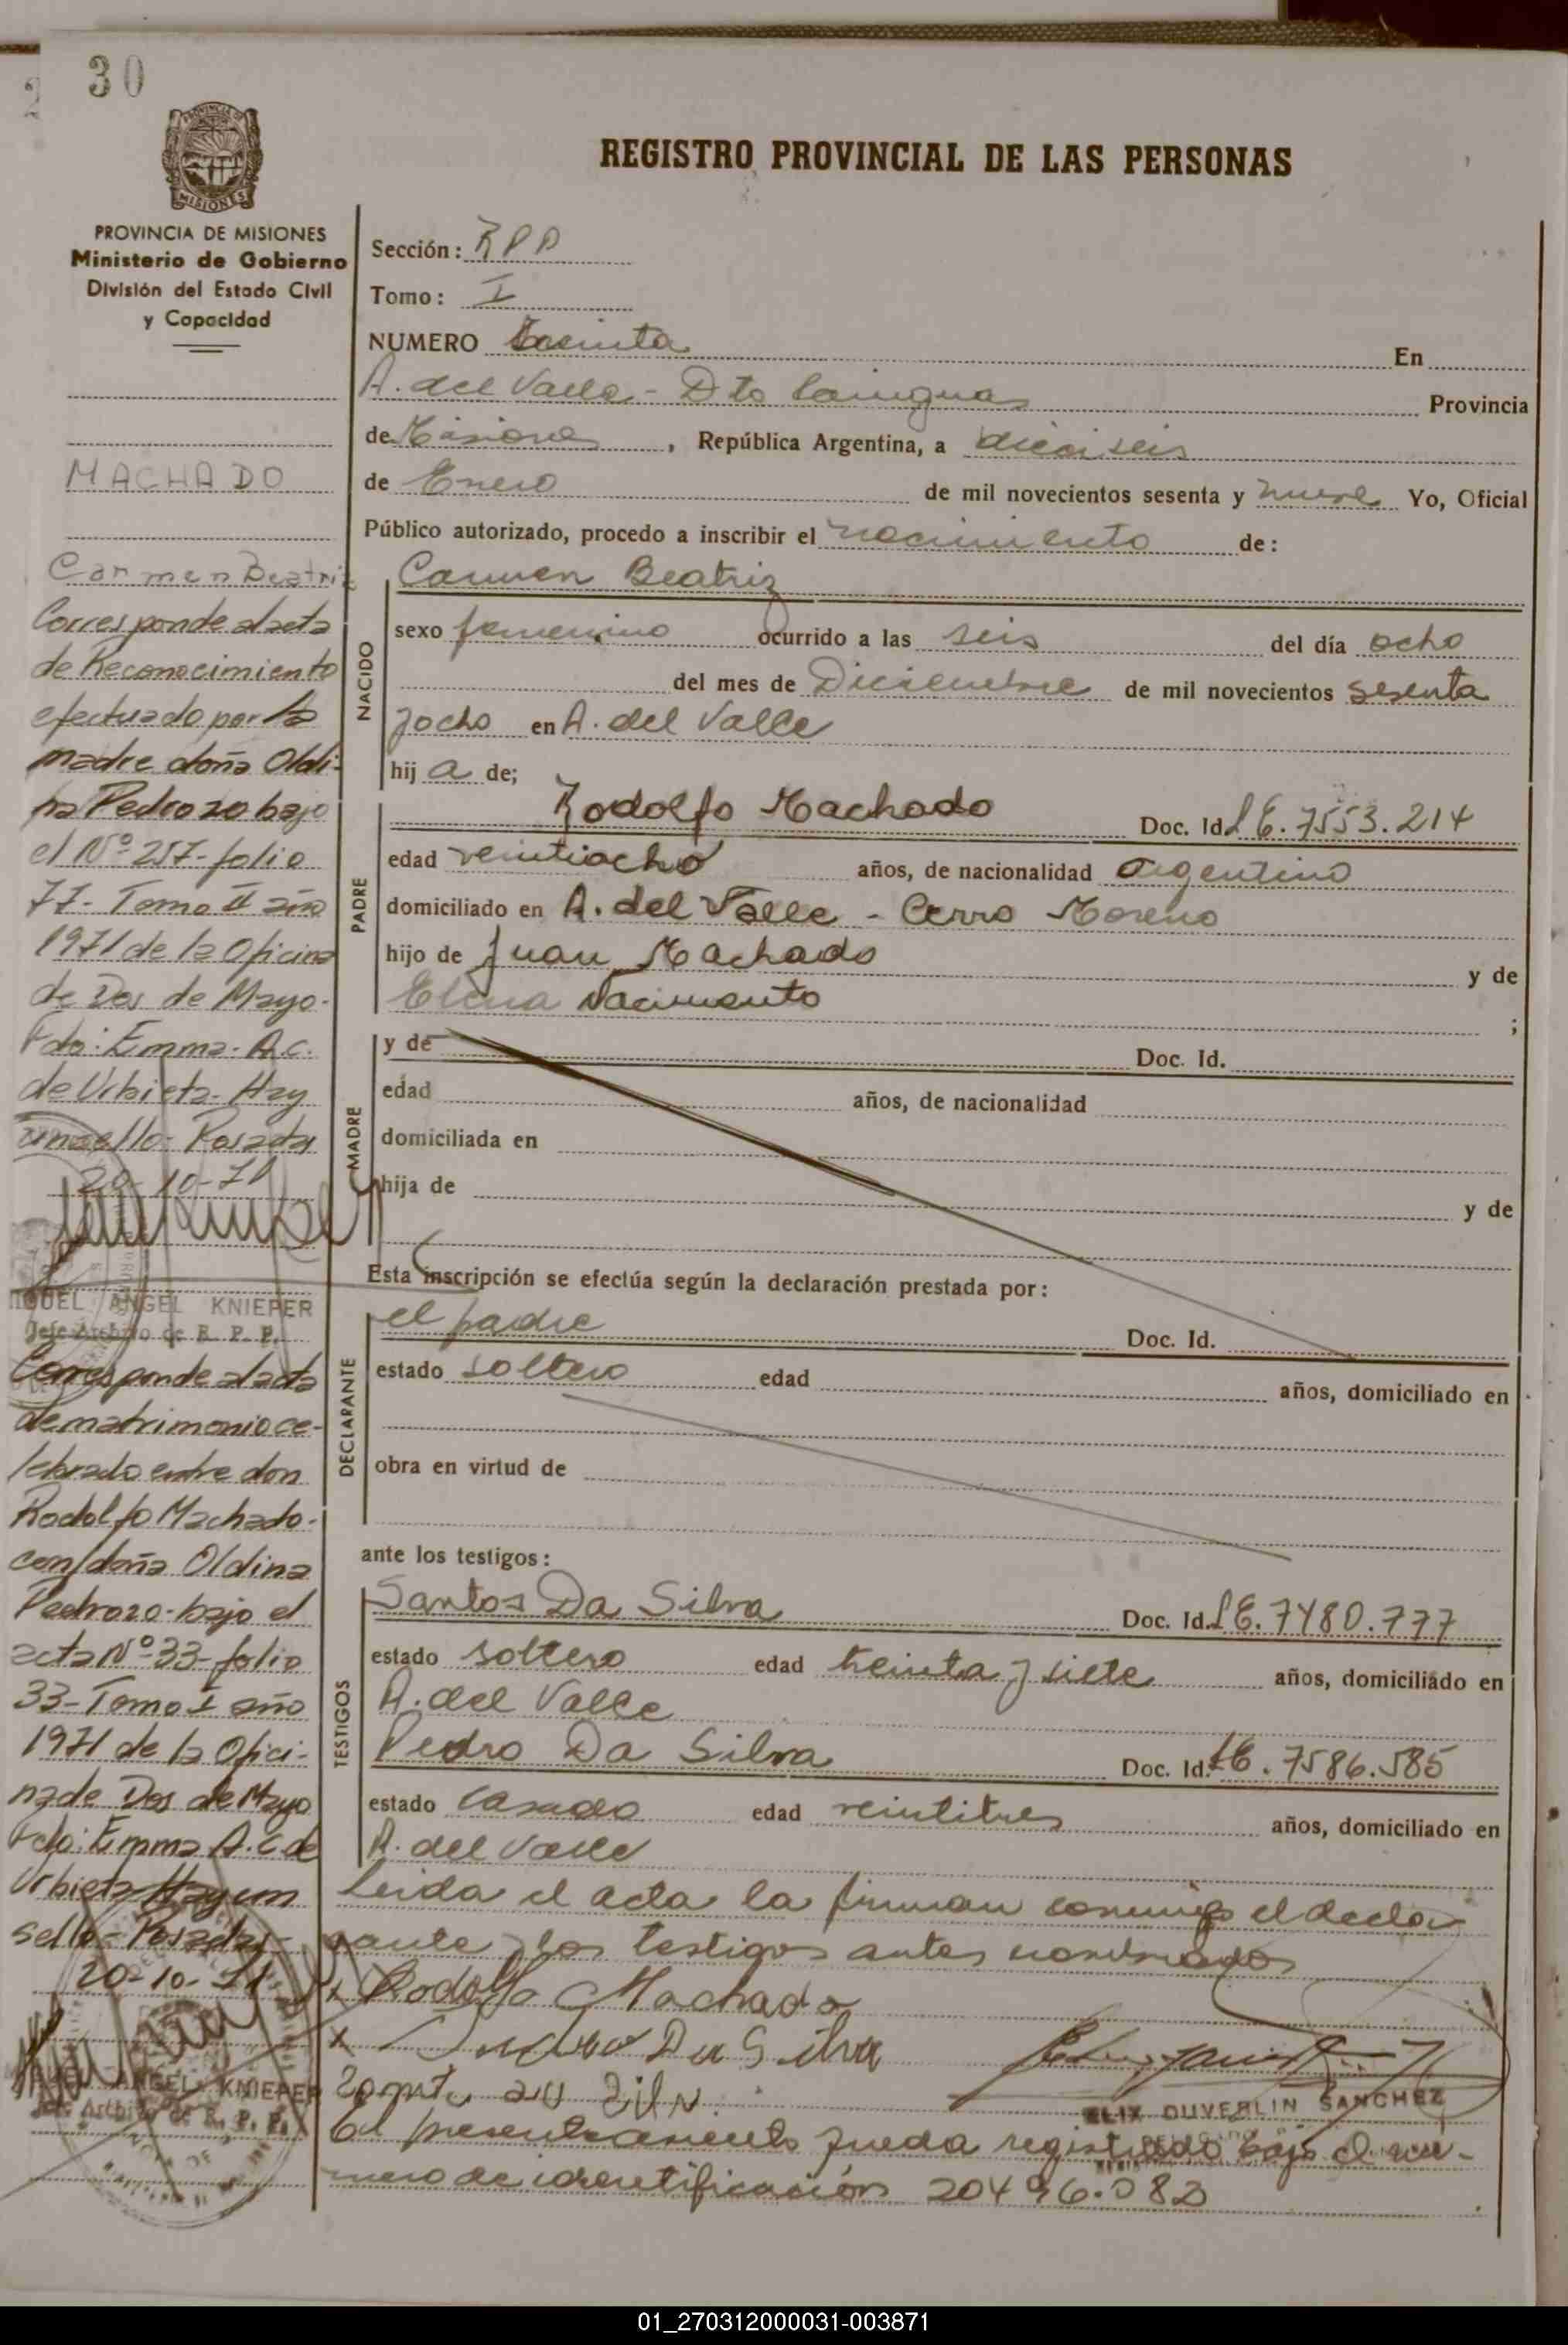 30
PROVINCIA DE MISIONES
Ministerio de Gobierno
División del Estado Civil
y Capacidad
MACHADO
Carmen Beatriz
Corresponde al acta
de Reconocimiento
efectuado por la
madre doña Oldi-
na Pedrozo bajo
el Nº 257-folio
77- Tomo II año
1971 de la Oficina
de Dos de Mayo-
Fdo: Emma- A.C.
de Urbieta- Hay
un sello- Posadas
20-10-71
MIGUEL ANGEL KNIEPER
Jefe Archivo de R. P. P.
Corresponde al acta
de matrimonio ce-
lebrado entre don
Rodolfo Machado-
con/doña Oldina
Pedrozo-bajo el
acta Nº 33-folio
33-Tomo I año
1971 de la Ofici-
na de Dos de Mayo
Fdo: Emma A.C de
Urbieta Hay un
sello- Posadas-
20-10-71
ANGEL KNIEPER
Jefe Archivo de R. P. P.
REGISTRO PROVINCIAL DE LAS PERSONAS
Sección: RPP
Tomo: I
NUMERO Treinta En
A. del Valle - Dto Cainguas Provincia
de Misiones, República Argentina, a dieciseis
de Enero de mil novecientos sesenta y nueve Yo, Oficial
Público autorizado, procedo a inscribir el nacimiento de:
NACIDO
Carmen Beatriz
sexo femenino ocurrido a las seis del día ocho
del mes de Diciembre de mil novecientos sesenta
y ocho en A. del Valle
hij a de;
PADRE
Rodolfo Machado Doc. Id. L E. 7553.214
edad veintiocho años, de nacionalidad argentino
domiciliado en A. del Valle - Cerro Moreno
hijo de Juan Machado y de
Elena Nacimento ;
MADRE
y de Doc. Id.
edad años, de nacionalidad
domiciliada en
hija de y de
Esta inscripción se efectúa según la declaración prestada por:
DECLARANTE
el padre Doc. Id.
estado soltero edad años, domiciliado en
obra en virtud de
ante los testigos:
TESTIGOS
Santos Da Silva Doc. Id. L E. 7480.777
estado soltero edad treinta y siete años, domiciliado en
A. del Valle
Pedro Da Silva Doc. Id. L E. 7586.585
estado casado edad veintitres años, domiciliado en
A. del Valle
Leida el acta la firman conmigo el decla
rante y los testigos antes nombrados
x Rodolfo Machado
x Da Silva
ELIX DUVERLIN SANCHEZ
El presente asiento queda registrado bajo el nu-
mero de identificación 20496.082
01_270312000031-003871